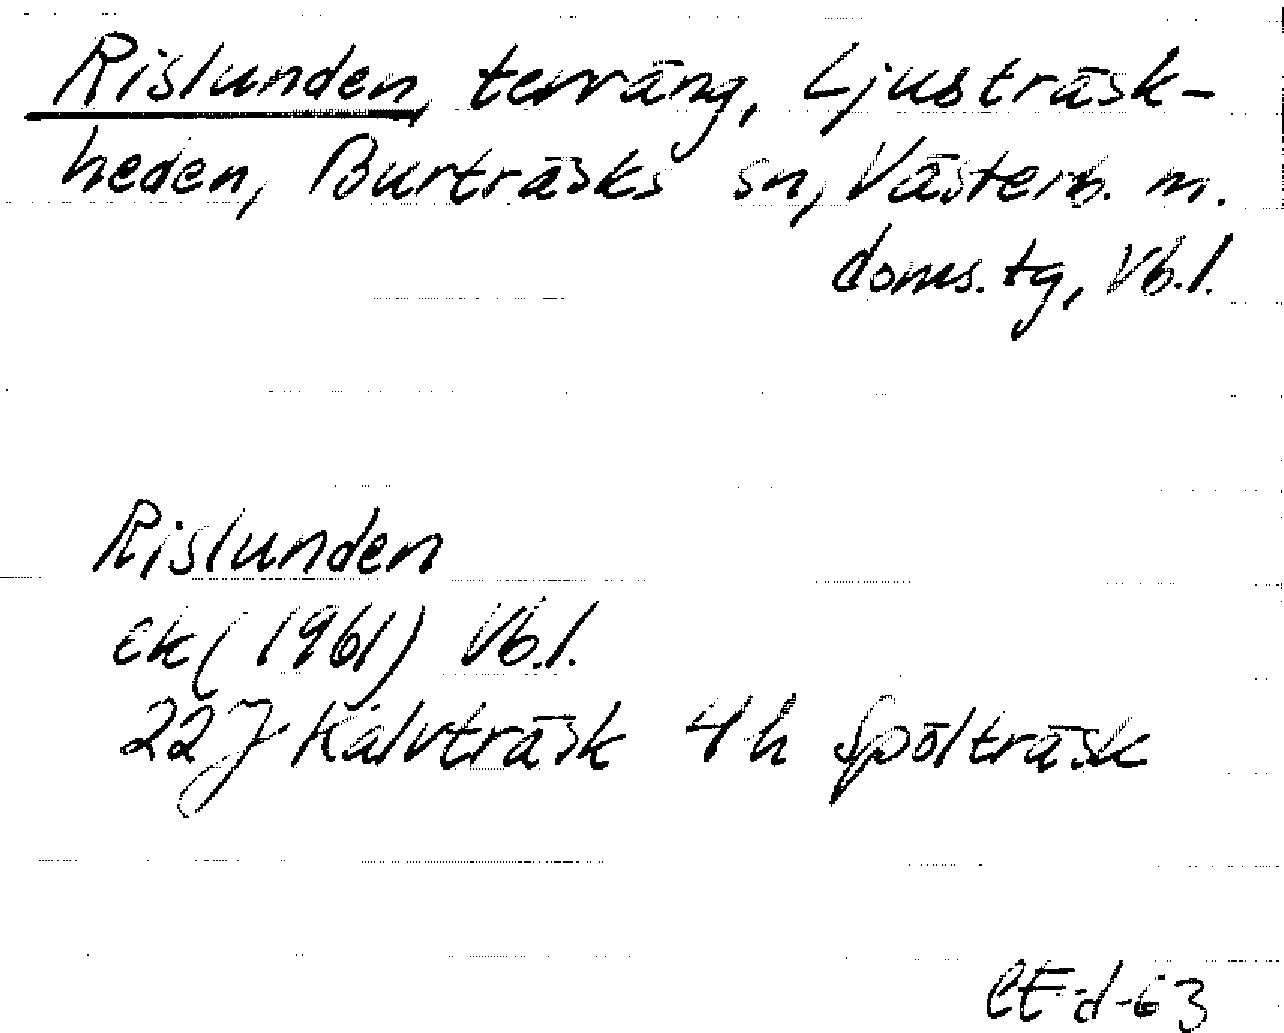 Rislunden, terräng, Ljusträsk-
heden, Burträsks sn, Västerb. m.
doms.tg, Vb.l.
Rislunden
ek (1961) Vb.l.
22J Kalvträsk 4h Spölträsk
CE-d-63